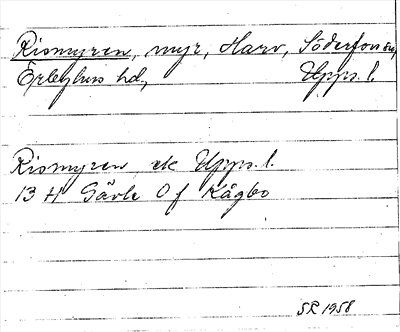 Rismyren, myr, Harv, Söderfors sn,
Örbyhus hd, Upps. l.
Rismyren ek Upps. l.
13 H Gävle 0 f Kågbo
SR 1958